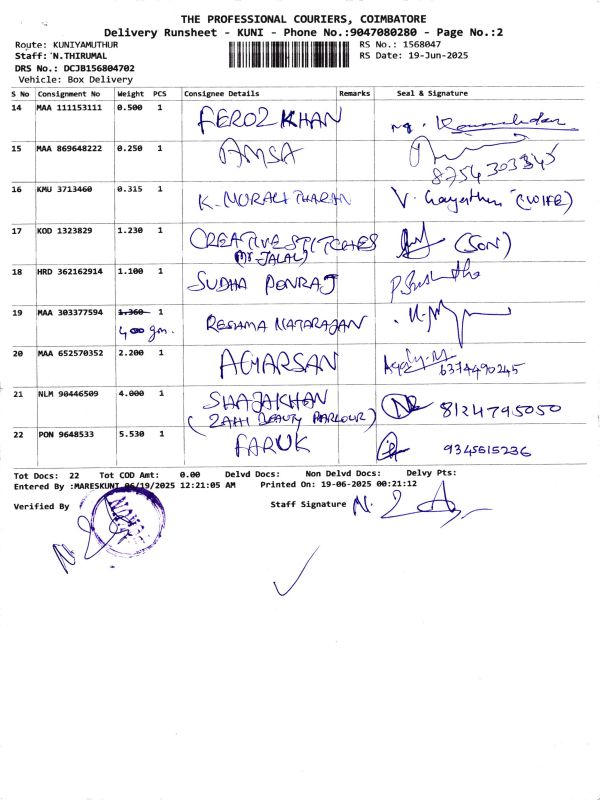 THE PROFESSIONAL COURIERS, COIMBATORE
Delivery Runsheet - KUNI - Phone No.:9047080280 - Page No.:2
Route: KUNIYAMUTHUR RS No.: 1568047
Staff: N.THIRUMAL RS Date: 19-Jun-2025
DRS No.: DCJB156804702
Vehicle: Box Delivery
S No Consignment No Weight PCS Consignee Details Remarks Seal & Signature
14 MAA 111153111 0.500 1 FEROZ KHAN
15 MAA 869648222 0.250 1 AMSA 8754303345
16 KMU 3713460 0.315 1 K. MURALI THARAN V. Gayathri (WIFE)
17 KOD 1323829 1.230 1 CREATIVE STITCHES (SON)
(Mr. JALAL)
18 HRD 362162914 1.100 1 SUDHA PONRAJ
19 MAA 303377594 1.360 1 RESHMA NATARAJAN
400 gm.
20 MAA 652570352 2.200 1 AGHARSAN 6374490245
21 NLM 90446509 4.000 1 SHAJAKHAN 8124795050
(ZAHI BEAUTY PARLOUR)
22 PON 9648533 5.530 1 FARUK 9345515236
Tot Docs: 22 Tot COD Amt: 0.00 Delvd Docs: Non Delvd Docs: Delvy Pts:
Entered By :MARESKUNI 06/19/2025 12:21:05 AM Printed On: 19-06-2025 00:21:12
Verified By Staff Signature